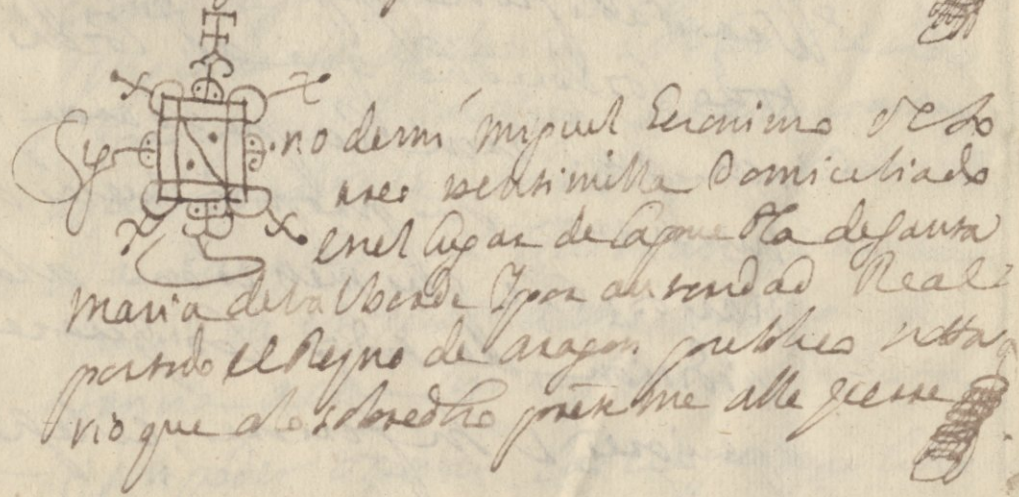 Sig no de mi Miguel Geronimo de Lo
domiciliado
en el lugar de la Puebla de Santa
Maria de la Yberde Y por autoridad Real
por todo el Reyno de Aragon publico notta
rio que a lo sobredho press.te me alle y cerre